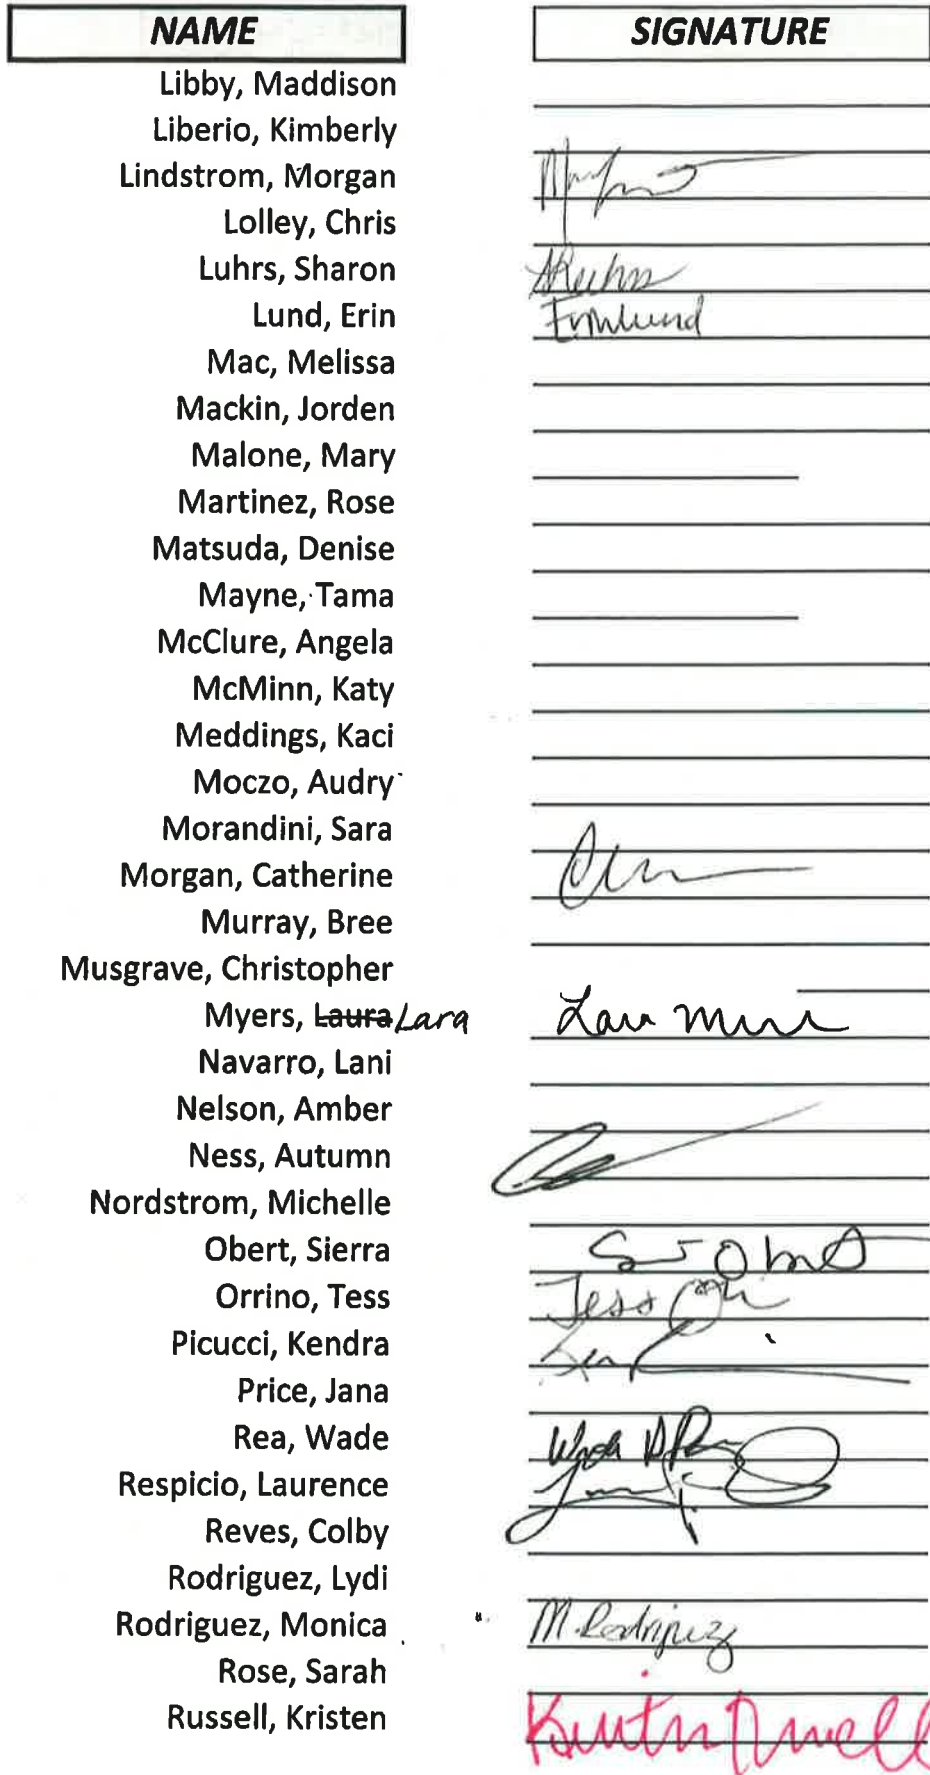 NAME SIGNATURE
Libby, Maddison
Liberio, Kimberly
Lindstrom, Morgan
Lolley, Chris
Luhrs, Sharon
Lund, Erin
Mac, Melissa
Mackin, Jorden
Malone, Mary
Martinez, Rose
Matsuda, Denise
Mayne, Tama
McClure, Angela
McMinn, Katy
Meddings, Kaci
Moczo, Audry
Morandini, Sara
Morgan, Catherine
Murray, Bree
Musgrave, Christopher
Myers, Laura Lara
Navarro, Lani
Nelson, Amber
Ness, Autumn
Nordstrom, Michelle
Obert, Sierra
Orrino, Tess Tess
Picucci, Kendra
Price, Jana
Rea, Wade
Respicio, Laurence
Reves, Colby
Rodriguez, Lydi
Rodriguez, Monica M. Rodriguez
Rose, Sarah
Russell, Kristen